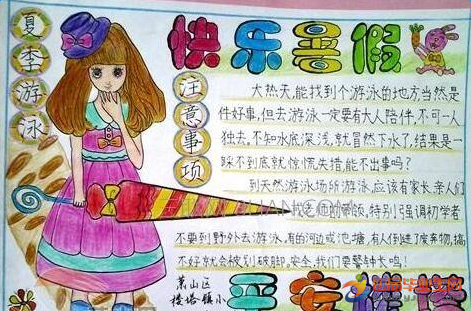 快乐暑假
夏季游泳
注意事项
大热天,能找到个游泳的地方,当然是
件好事,但去游泳一定要有大人陪伴,不可一人
独去。不知水底深浅,就冒然下水了,结果是一
踩不到底就惊慌失措,能不出事吗?
到天然游泳场所游泳,应该有家长、亲人们
老师的带领,特别强调初学者
不要到野外去游泳,有的河边或池塘,有人倒进了废弃物,搞
不好就会被划破脚。安全,我们要警钟长鸣!
萧山区
楼塔镇小
平安